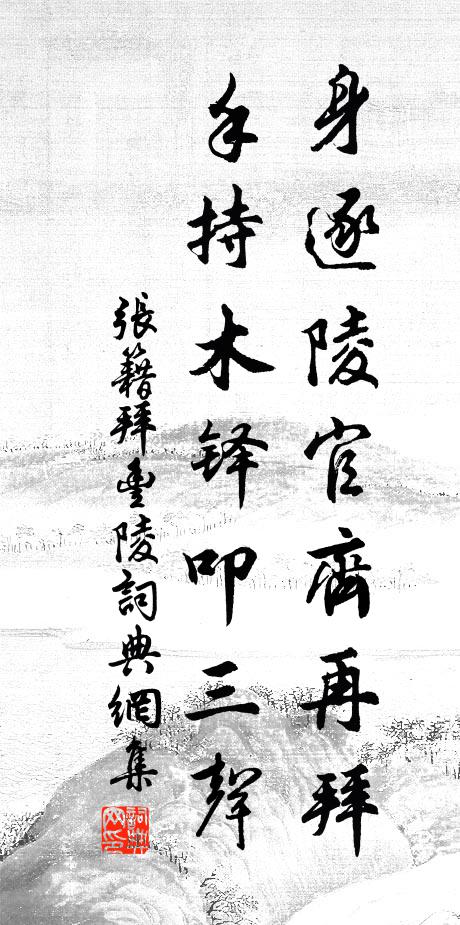 身逐陵官齊再拜
手持木鐸叩三聲
張籍拜豐陵詞典網集